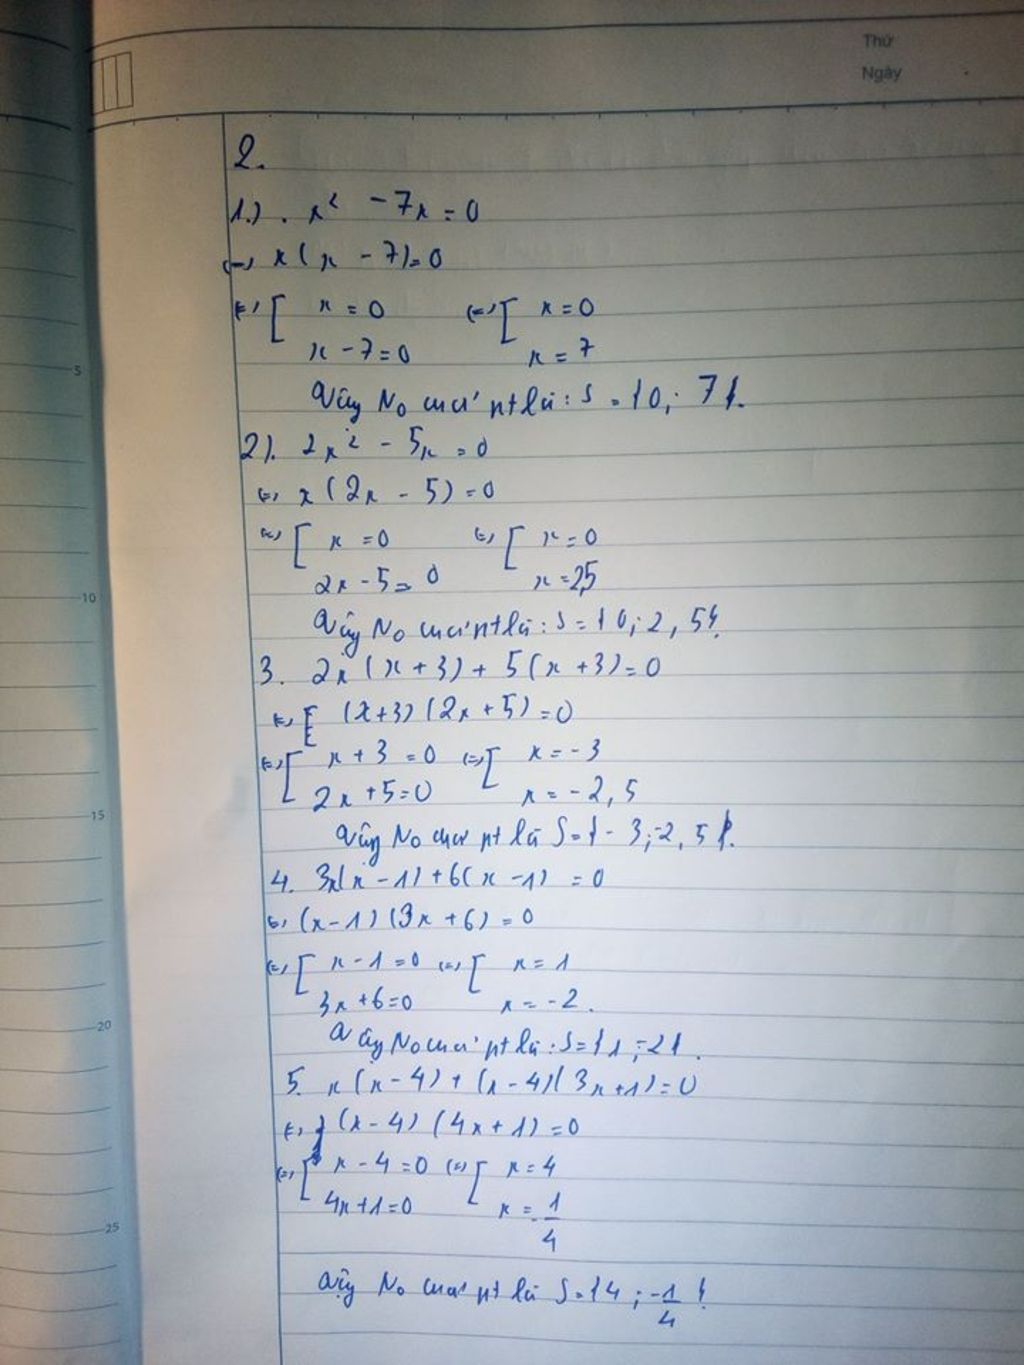 Thứ
Ngày
2.
1.) . x² - 7x = 0
(=) x(x - 7) = 0
(=) [ x = 0 (=) [ x = 0
x - 7 = 0 x = 7
Vậy No của pt là: S = {0; 7}.
2). 2x² - 5x = 0
(=) x(2x - 5) = 0
5
(=) [ x = 0 (=) [ x = 0
2x - 5 = 0 x = 2,5
10
Vậy No của pt là: S = {0; 2,5}.
3. 2x(x+3) + 5(x+3) = 0
(=) [ (x+3)(2x+5) = 0
(=) [ x + 3 = 0 (=) [ x = -3
2x + 5 = 0 x = -2,5
15
Vậy No của pt là S = {-3; -2,5}.
4. 3x(x - 1) + 6(x - 1) = 0
(=) (x-1)(3x+6) = 0
(=) [ x - 1 = 0 (=) [ x = 1
3x + 6 = 0 x = -2.
20
Vậy No của pt là: S = {1; -2}.
5. x(x - 4) + (x - 4)(3x + 1) = 0
(=) (x - 4)(4x + 1) = 0
(=) [ x - 4 = 0 (=) [ x = 4
4x + 1 = 0 x = -1/4
25
Vậy No của pt là S = {4; -1/4}